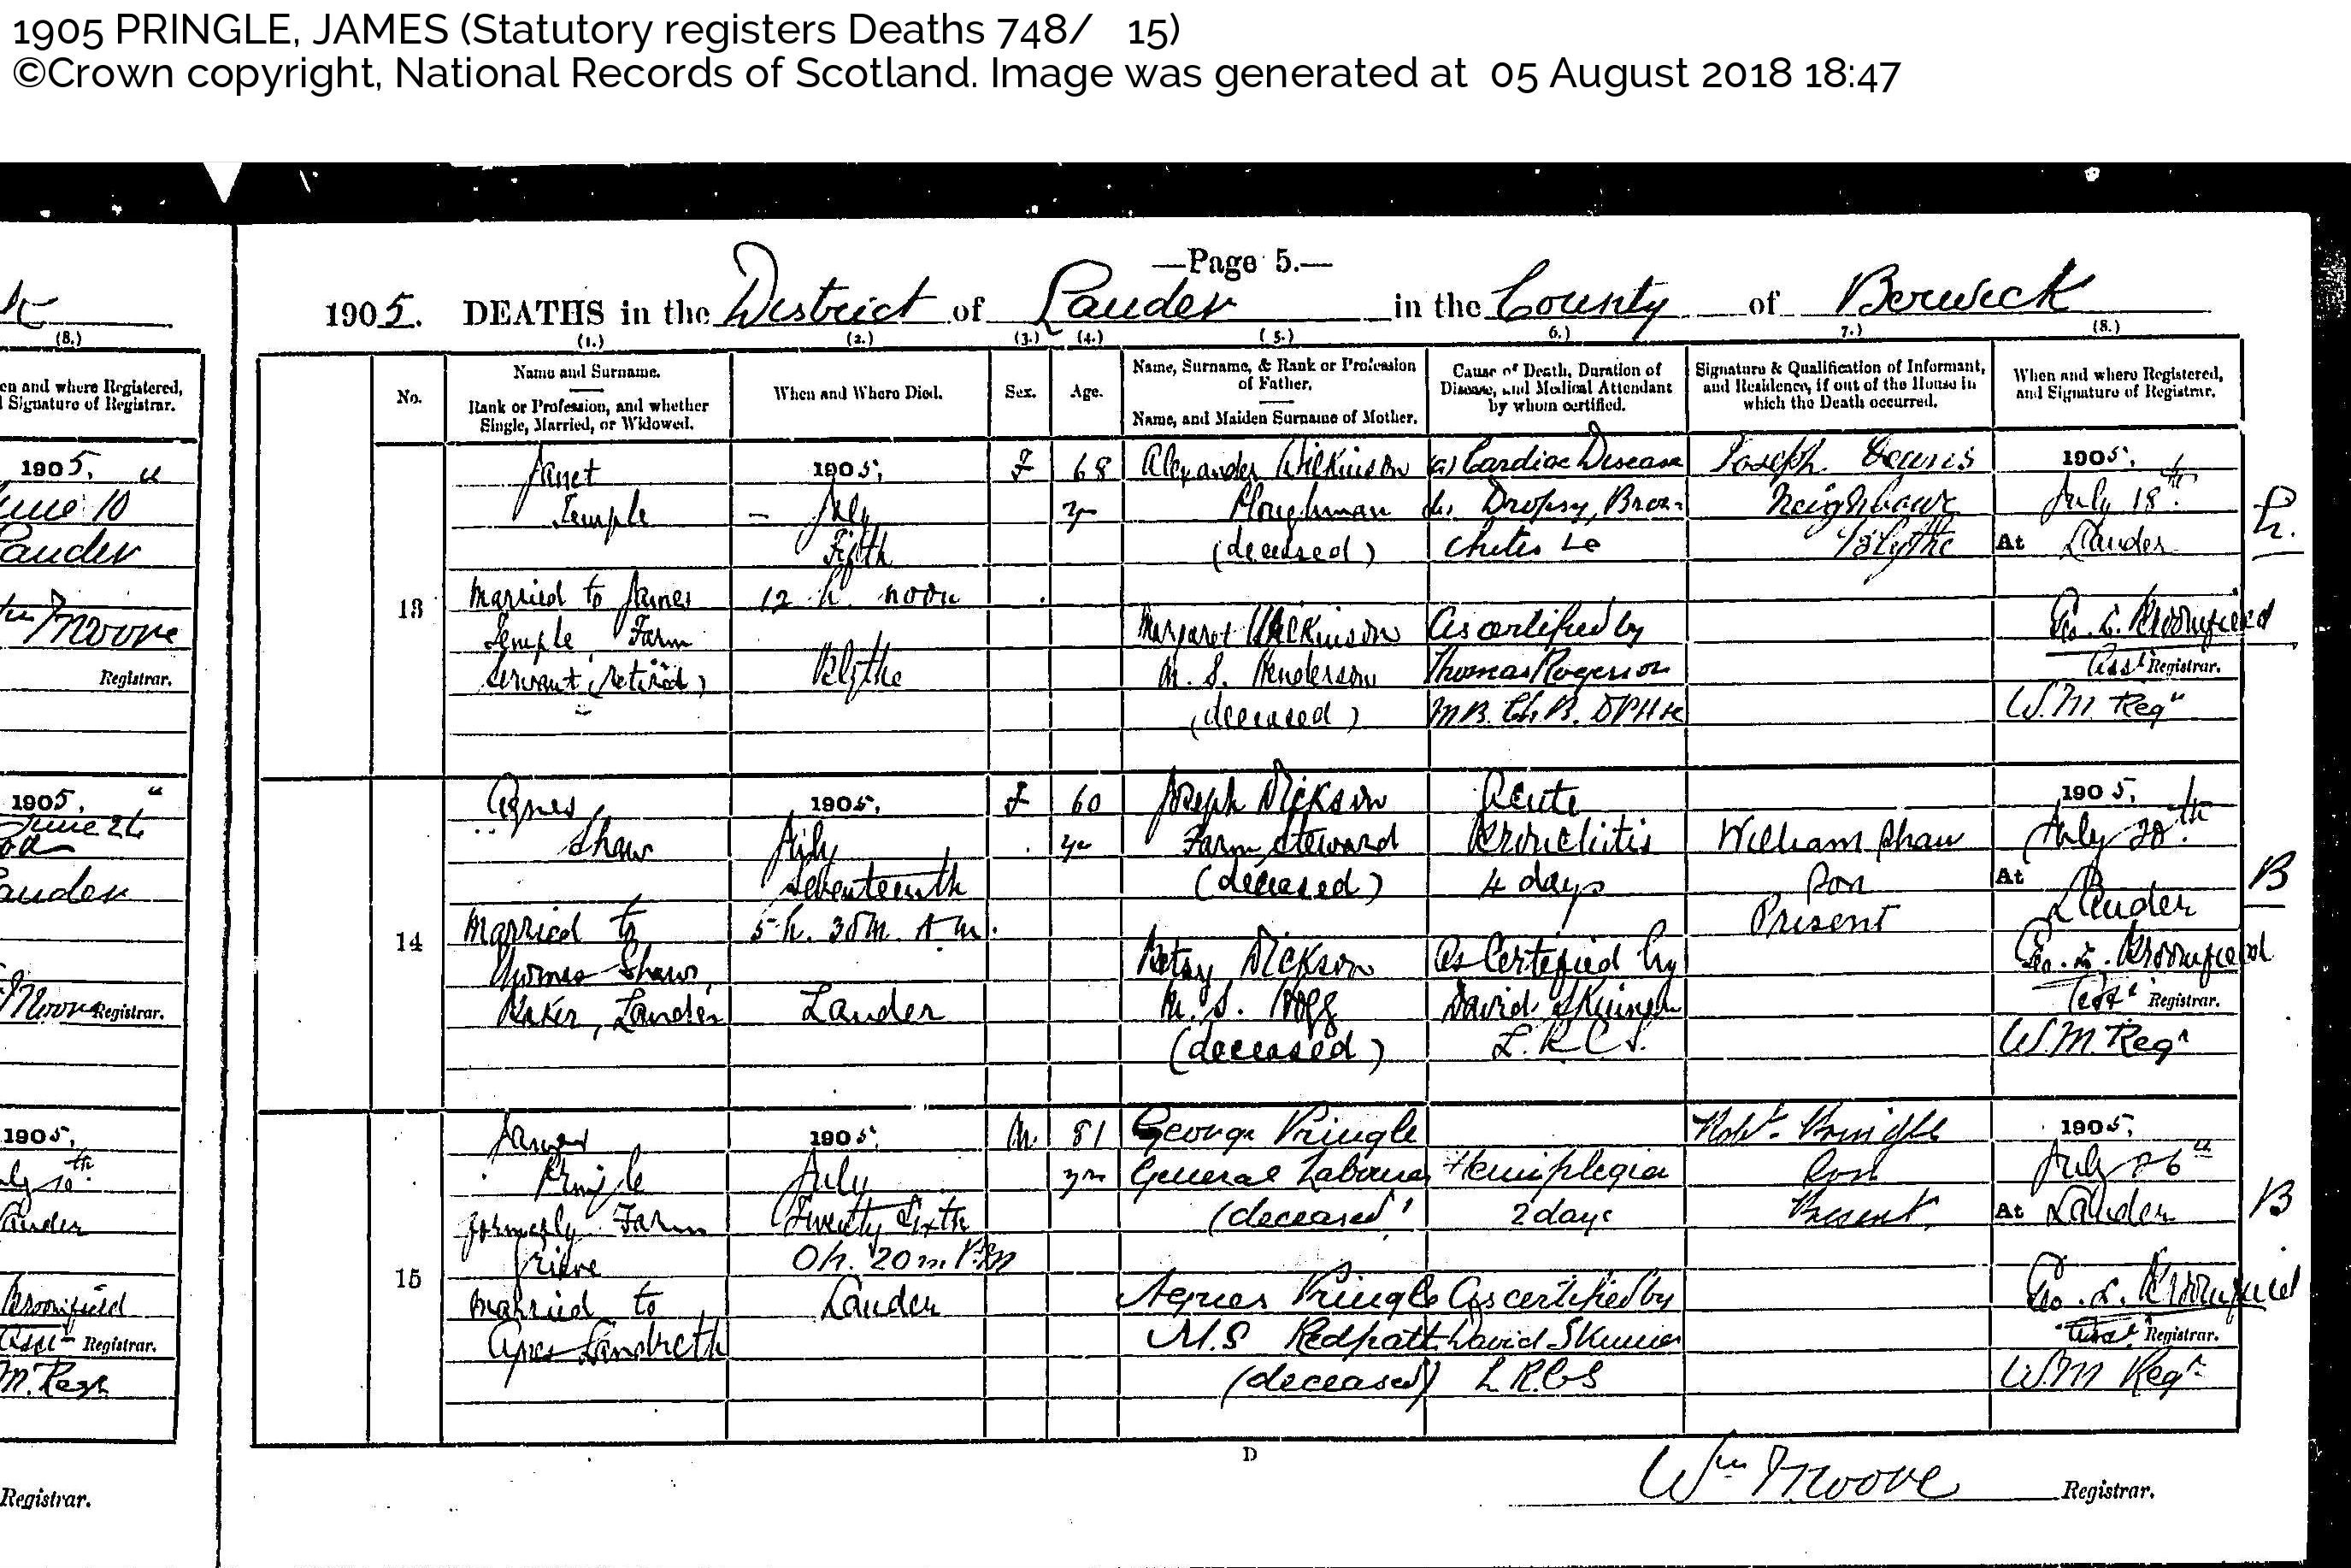 1905 PRINGLE, JAMES (Statutory registers Deaths 748/ 15)
©Crown copyright, National Records of Scotland. Image was generated at 05 August 2018 18:47
—Page 5.—
1905. DEATHS in the District of Lauder in the County of Berwick
(1.) (2.) (3.) (4.) (5.) 6.) 7.) (8.)
No.
Name and Surname.
Rank or Profession, and whether
Single, Married, or Widowed.
When and Where Died.
Sex.
Age.
Name, Surname, & Rank or Profession
of Father.
Name, and Maiden Surname of Mother.
Cause of Death, Duration of
Disease, and Medical Attendant
by whom certified.
Signature & Qualification of Informant,
and Residence, if out of the House in
which the Death occurred.
When and where Registered,
and Signature of Registrar.
13
Janet
Temple
Married to James
Temple, Farm
Servant (retired)
1905,
July
Fifth
12 h. noon
Blythe
F
68
Alexander Wilkinson
Ploughman
(deceased)
Margaret Wilkinson
M.S. Henderson
(deceased)
(a) Cardiac Disease
Dropsy, Bron-
chitis
As certified by
Thomas Rogerson
M.B. Ch.B. DPH
Joseph
Neighbour
Blythe
1905,
July 18th
At Lauder
Geo. L. Broomfield
Asst Registrar.
W.M. Regr
14
Agnes
Shaw
Married to
Thomas Shaw,
Baker, Lauder
1905,
July
Seventeenth
5 h. 30 m. A.M.
Lauder
F
60
Joseph Dickson
Farm Steward
(deceased)
Betsy Dickson
M.S. Hogg
(deceased)
Acute
Bronchitis
4 days
As Certified by
David Skinner
L.R.C.S.
William Shaw
Son
Present
1905,
July 20th
At Lauder
Geo. L. Broomfield
Asst Registrar.
W.M. Regr
B
15
James
Pringle
formerly Farm
Grieve
Married to
Agnes Landreth
1905,
July
Twenty Sixth
0 h. 20 m. P.M
Lauder
M.
81
George Pringle
General Labourer
(deceased)
Agnes Pringle
M.S Redpath
(deceased)
Hemiplegia
2 days
As certified by
David Skinner
L.R.C.S
Robt. Pringle
Son
Present
1905,
July 26
At Lauder
Geo. L. Broomfield
Asst Registrar.
W.M Regr
B
D
Wm Moore Registrar.